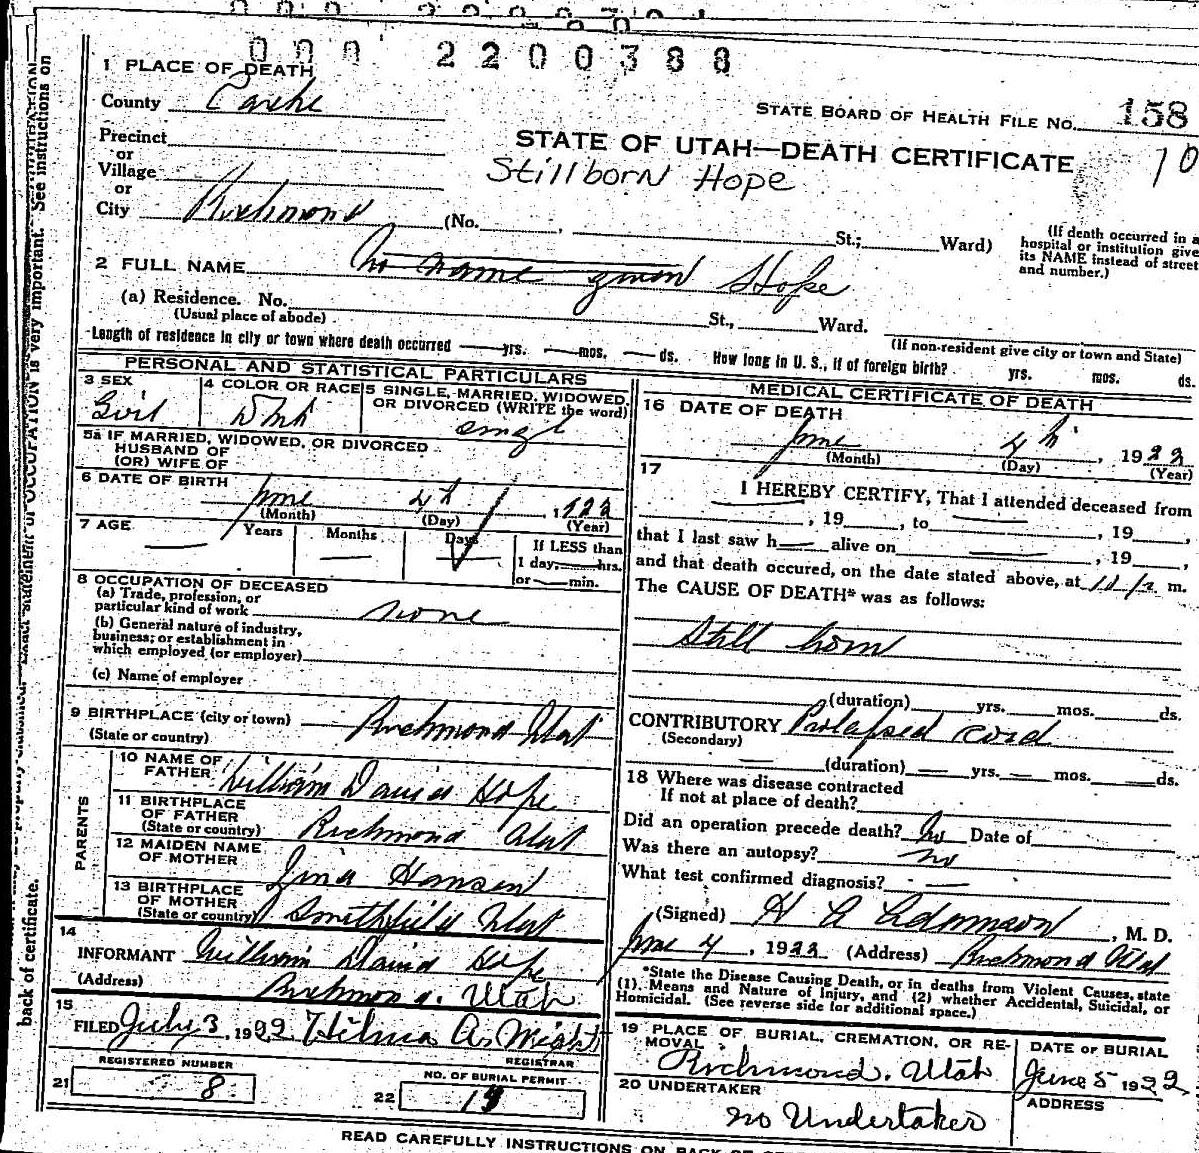 000 2200388
1 PLACE OF DEATH
County Cache
STATE BOARD OF HEALTH FILE NO. 158
Precinct
or
Village
or
City Richmond (No. , St.; Ward)
STATE OF UTAH—DEATH CERTIFICATE 10
Stillborn Hope
(If death occurred in a
hospital or institution give
its NAME instead of street
and number.)
2 FULL NAME No name given Hope
(a) Residence. No. St., Ward.
(Usual place of abode) (If non-resident give city or town and State)
Length of residence in city or town where death occurred — yrs. — mos. — ds. How long in U. S., if of foreign birth? yrs. mos. ds.
PERSONAL AND STATISTICAL PARTICULARS
3 SEX
Girl
4 COLOR OR RACE
Wht
5 SINGLE, MARRIED, WIDOWED,
OR DIVORCED (WRITE the word)
singl
5a IF MARRIED, WIDOWED, OR DIVORCED
HUSBAND OF
(OR) WIFE OF
6 DATE OF BIRTH
June 4th, 1922
(Month) (Day) (Year)
7 AGE Years Months Days
If LESS than
1 day, — hrs.
or — min.
8 OCCUPATION OF DECEASED
(a) Trade, profession, or
particular kind of work none
(b) General nature of industry,
business; or establishment in
which employed (or employer)
(c) Name of employer
9 BIRTHPLACE (city or town) Richmond Utah
(State or country)
PARENTS
10 NAME OF
FATHER William David Hope
11 BIRTHPLACE
OF FATHER
(State or country) Richmond Utah
12 MAIDEN NAME
OF MOTHER Zina Hansen
13 BIRTHPLACE
OF MOTHER
(State or country) Smithfield Utah
14
INFORMANT William David Hope
(Address) Richmond. Utah
15
FILED July 3, 1922 Hilma A. Wight
REGISTRAR
REGISTERED NUMBER
21 8
NO. OF BURIAL PERMIT
22
MEDICAL CERTIFICATE OF DEATH
16 DATE OF DEATH
June 4th, 1922
(Month) (Day) (Year)
17
I HEREBY CERTIFY, That I attended deceased from
, 19 , to , 19 ,
that I last saw h— alive on — , 19 ,
and that death occured, on the date stated above, at m.
The CAUSE OF DEATH* was as follows:
Still born
(duration) yrs. mos. ds.
CONTRIBUTORY Prolapsed cord
(Secondary)
— (duration) — yrs. — mos. ds.
18 Where was disease contracted
If not at place of death?
Did an operation precede death? No Date of
Was there an autopsy? no
What test confirmed diagnosis? —
(Signed) Adamson, M. D.
June 4, 1922 (Address) Richmond Utah
*State the Disease Causing Death, or in deaths from Violent Causes, state
(1). Means and Nature of Injury, and (2) whether Accidental, Suicidal, or
Homicidal. (See reverse side for additional space.)
19 PLACE OF BURIAL, CREMATION, OR RE-
MOVAL
Richmond. Utah
DATE OF BURIAL
June 5 1922
20 UNDERTAKER
no Undertaker
ADDRESS
back of certificate.
See instructions on
READ CAREFULLY INSTRUCTIONS ON BACK OF